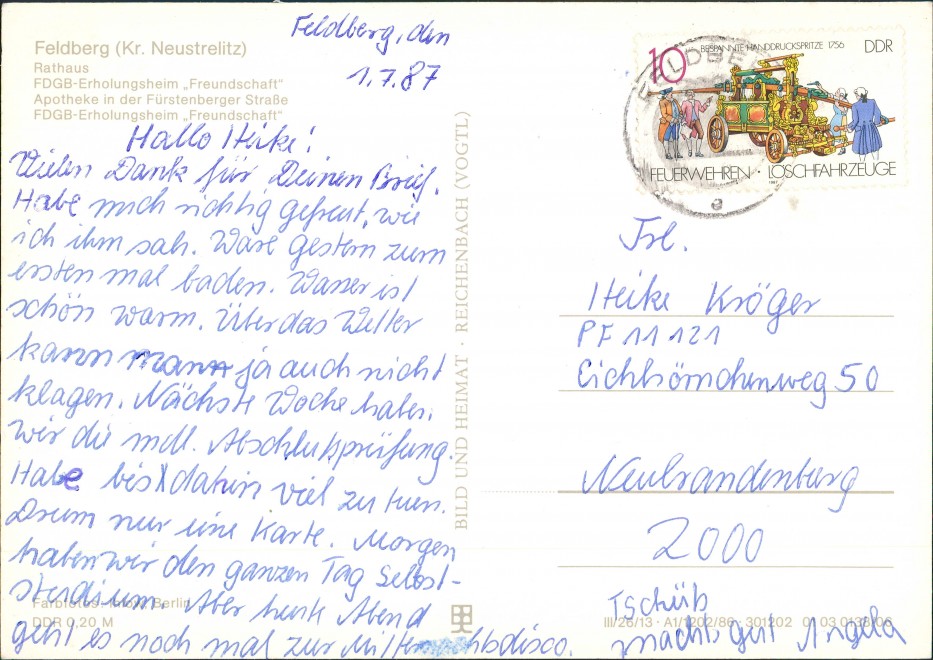 Feldberg (Kr. Neustrelitz)
Rathaus
FDGB-Erholungsheim „Freundschaft“
Apotheke in der Fürstenberger Straße
FDGB-Erholungsheim „Freundschaft“
Feldberg, den
1.7.87
Hallo Heike!
Vielen Dank für Deinen Brief.
Habe mich richtig gefreut, wie
ich ihm sah. Ware gestern zum
ersten mal baden. Wasser ist
schön warm. Über das Wetter
kann man ja auch nicht
klagen. Nächste Woche haben
wir die mdl. Abschlußprüfung.
Habe bis dahin viel zu tun.
Drum nur eine Karte. Morgen
haben wir den ganzen Tag Selbst-
studium. Aber heute Abend
geht es noch mal zur Mitternachtsdisco.
Tschüß
macht's gut Angela
Farbfotos: Berlin
DDR 0,20 M
BILD UND HEIMAT · REICHENBACH (VOGTL)
III/26/13 · A1/1202/86 301202 01 03 0138/06
10
BESPANNTE HANDDRUCKSPRITZE 1756
DDR
FEUERWEHREN · LÖSCHFAHRZEUGE
FELDBE
a
Frl.
Heike Kröger
PF 11 121
Eichhörnchenweg 50
Neubrandenburg
2000